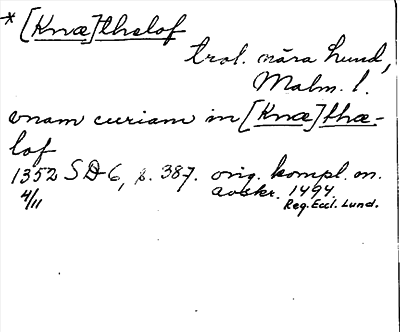 * [Knæ]thslof
trol. nära hund,
Malm. l.
vnam curiam in [Knæ]thæ-
lof
1352 SD 6, s. 387. orig. kompl. m.
4/11 avskr. 1494.
Reg. Eccl. Lund.